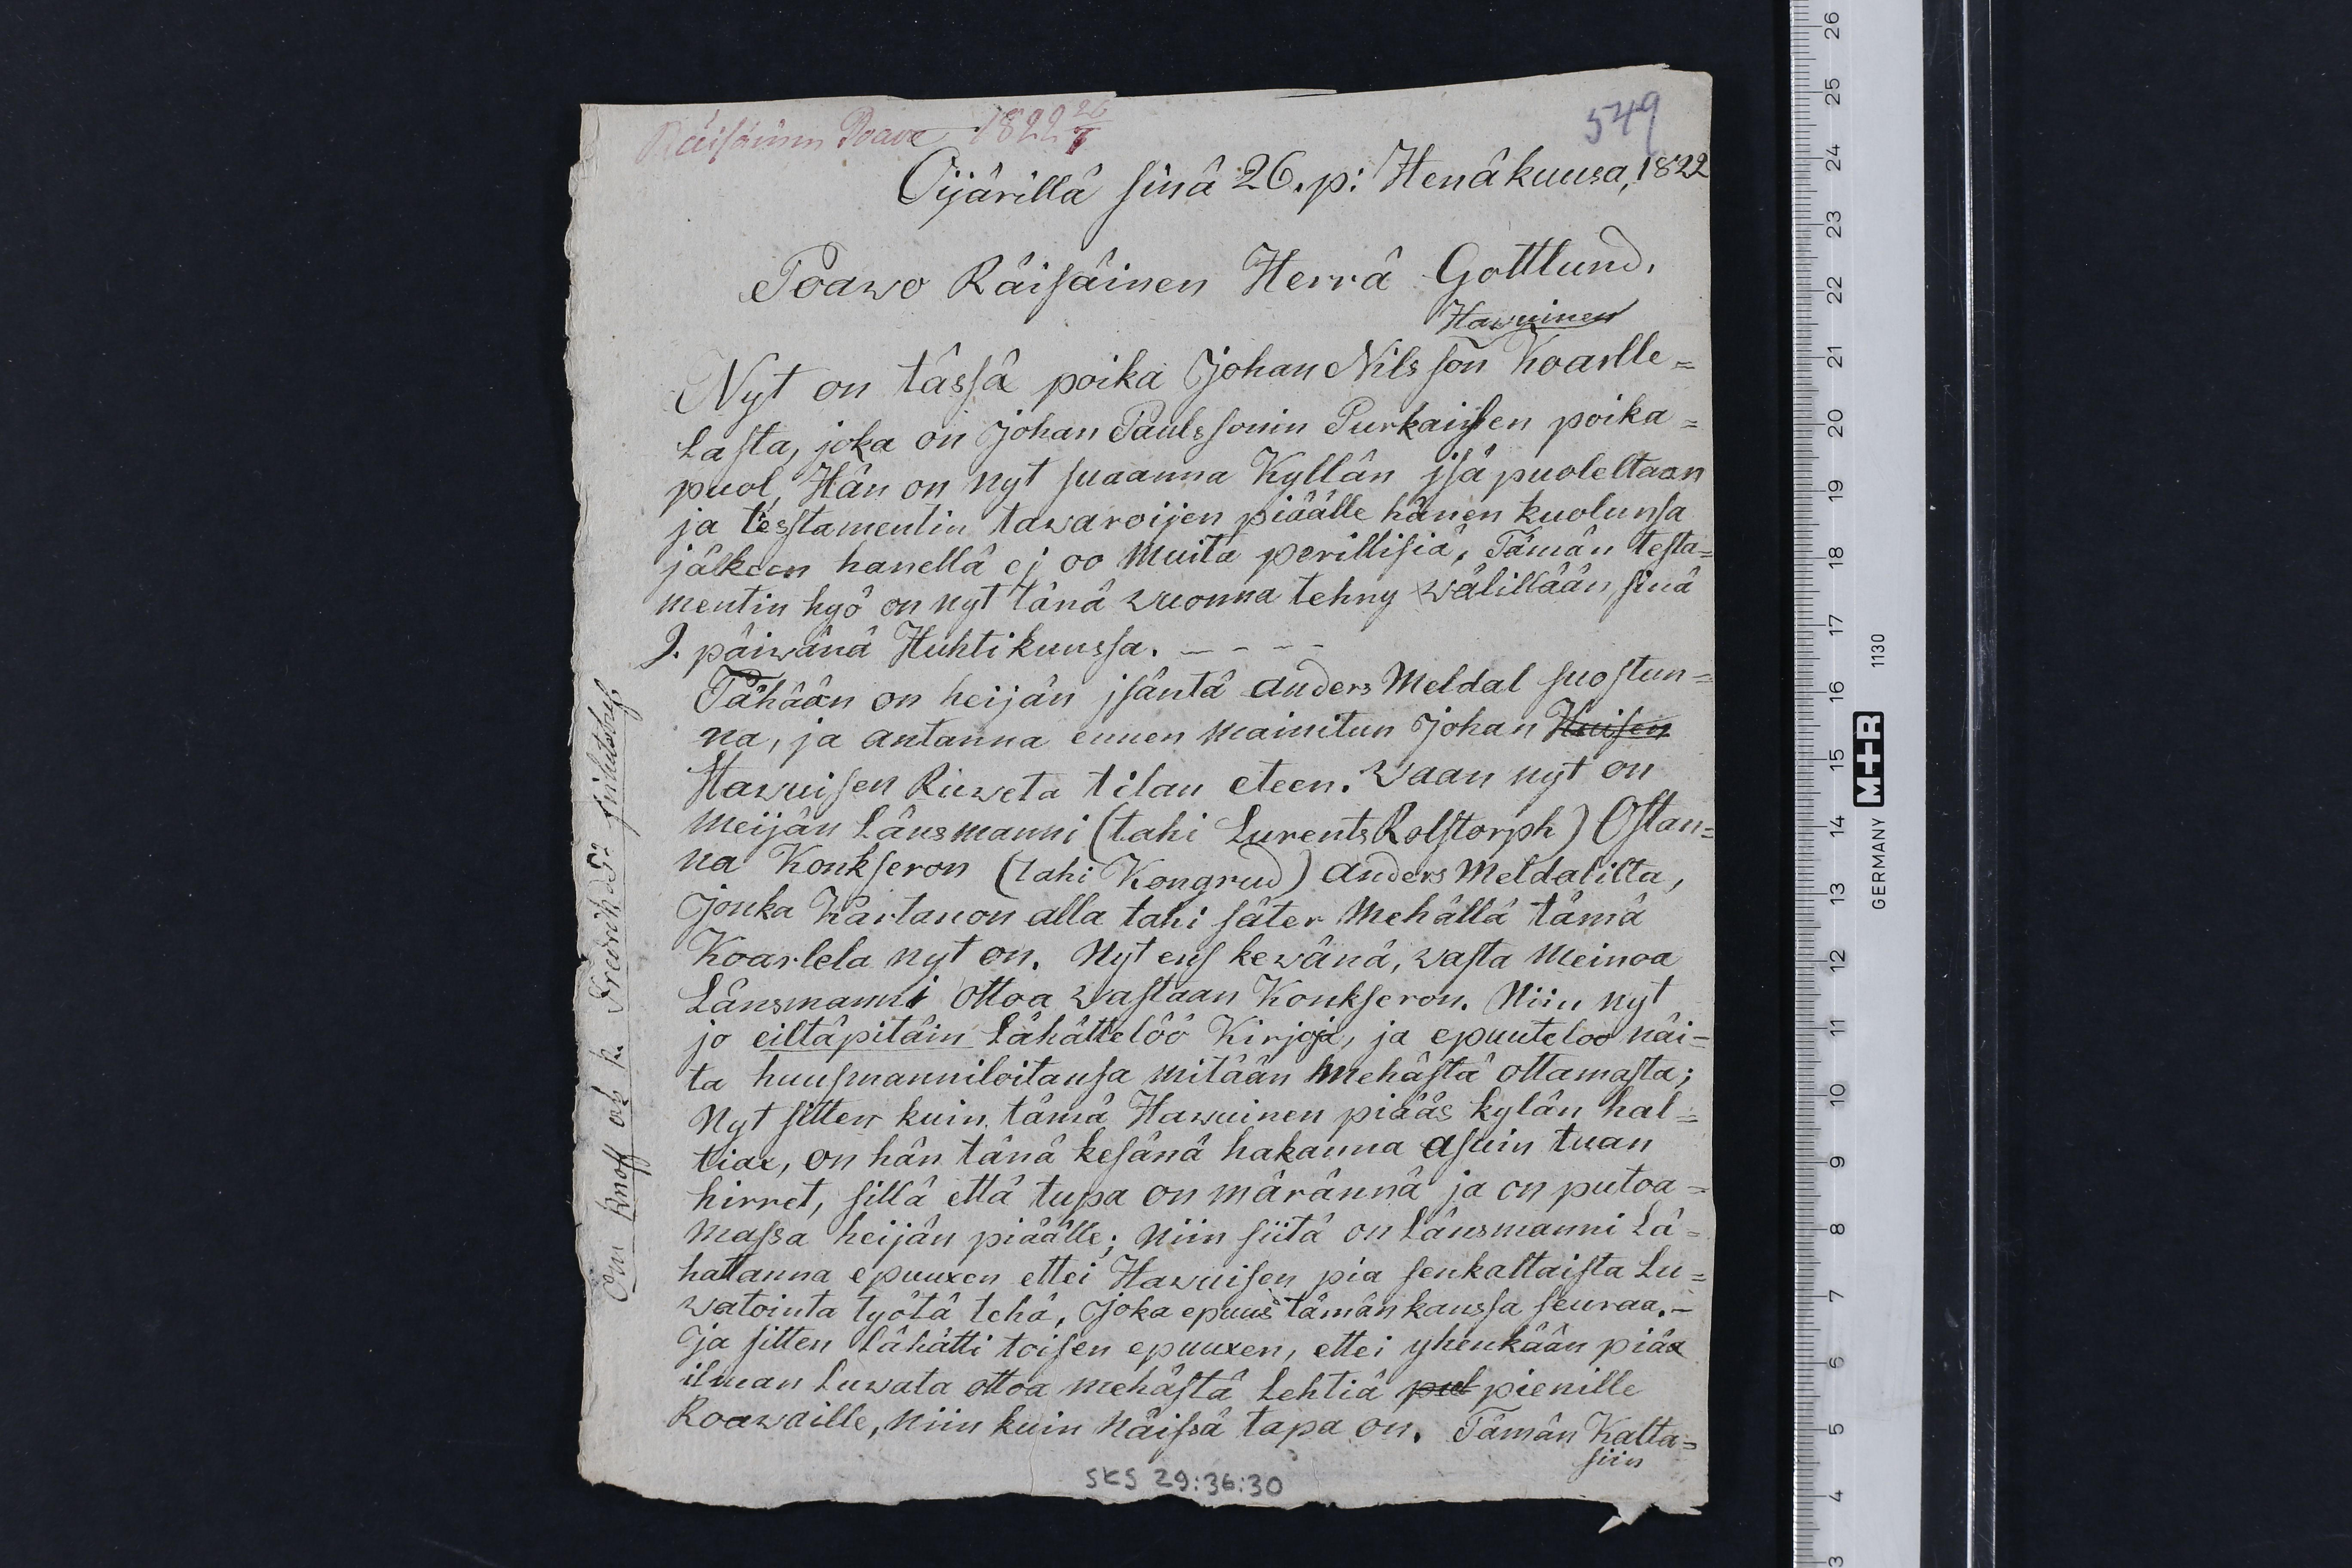 Räisäinen Poavo 1822 26/7
549
Öijärillä sinä 26. p: Henäkuusa, 1822
Poawo Räisäinen Herrä Gottlund.
Hawuinen
Nyt on tässä poika Johan Nilsson Koarlle=
lasta, joka on Johan Paulssonin Purkaisen poika=
puol, Hän on nyt suaanna Kyllän jsä puoleltaan
ja tesstamentin tawaroijen piäälle hänen kuolunsa
jälkeen hanellä ej oo muita perillisiä, Tämän testa=
mentin hyö on nyt tänä wuonna tehny wälillään, sinä
9. päiwänä Huhtikuussa. - - - -
Tähään on heijän jsäntä Anders Meldal suostun=
na, ja antanna ennen mainitun Johan Huisen
Hawuisen Riuweta tilan eteen. Waan nyt on
meijän Länsmanni (tahi Lurents Rolstorph) Ostan=
na Konkseron (tahi Kongrud) Anders Meldalilta,
Jonka kartanon alla tahi säter mehällä tämä
Koarlela nyt on. Nyt ens kewänä, wasta meinoa
Länsmanni ottoa wastaan Konkseron. Niin nyt
jo eiltäpitäin Lähättelöö Kirjoja, ja epuuteloo näi=
ta huusmanniloitansa mitään mehästä ottamasta;
Nyt sitten kuin tämä Hawuinen piääs kylän hal=
tiax, on hän tänä kesänä hakanna asuin tuan
hirret, sillä että tupa on märännä ja on putoa=
massa heijän piäälle; niin siitä on Länsmanni Lä=
hatanna epuuxen ettei Hawuisen pia senkaltaista Lu=
watointa työtä tehä, Joka epuus tämän kanssa seuraa. -
Ja sitten Lähätti toisen epuuxen, ettei yhenkään piäa
ilman Luwata ottoa mehästä Lehtiä pul pienille
Roawaille, niin kuin näissä tapa on. Tämän Kalta=
siin
SKS 29:36:30
M+R
GERMANY 1130
26
25
24
23
22
21
20
19
18
17
16
15
14
13
12
11
10
9
8
7
6
5
4
3